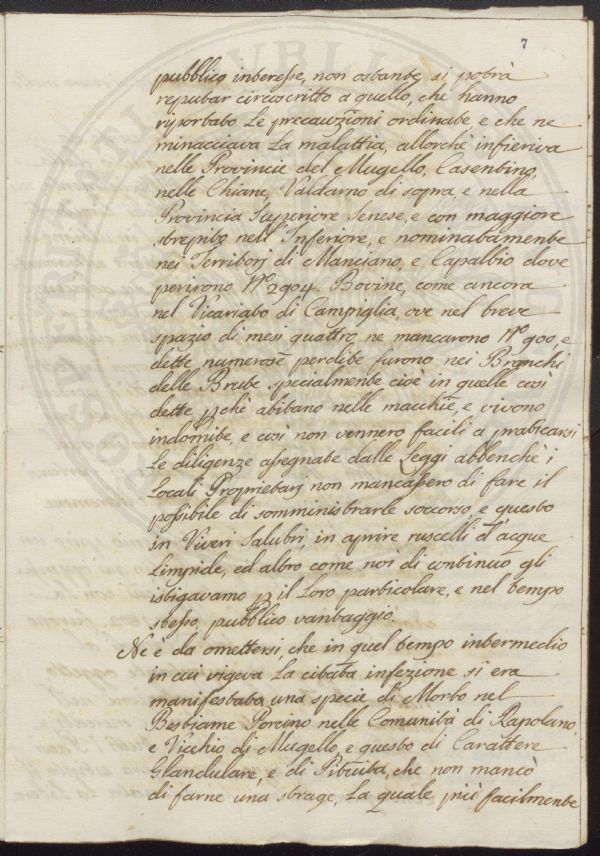 7
pubblico interesse, non ostante si potrà
reputar circoscritto a quello, che hanno
riportato Le precauzioni ordinate e che ne
minacciava La malattia, allorchè infieriva
nelle Provincie del Mugello, Casentino,
nelle Chiane, Valdarno di sopra, e nella
Provincia Superiore Senese, e con maggiore
strepito nell'Inferiore, e nominatamente
nei Territorj di Manciano, e Capalbio dove
perirono N.º 2904. Bovine, come ancora
nel Vicariato di Campiglia, ove nel breve
spazio di mesi quattro, ne mancarono N.º 900, e
dette numerose perdite furono nei Branchi
delle Brube specialmente cioè in quelle così
dette pchè abitano nelle macchie, e vivono
indomite, e così non vennero facili a praticarsi
Le diligenze assegnate dalle Leggi abbenchè i
Locali Proprietarj non mancassero di fare il
possibile di somministrarle soccorso, e questo
in Viveri Salubri, in aprire ruscelli d'acque
Limpide, ed altro come noi di continuo gli
istigavamo p il Loro particolare, e nel tempo
stesso, pubblico vantaggio.
Ne è da omettersi, che in quel tempo intermedio
in cui vigeva La citata infezione si era
manifestato una specie di Morbo nel
Bestiame Porcino nelle Comunità di Rapolano,
e Vicchio di Mugello, e questo di Carattere
Glandulare, e di Pituita, che non mancò
di farne una strage, La quale più facilmente